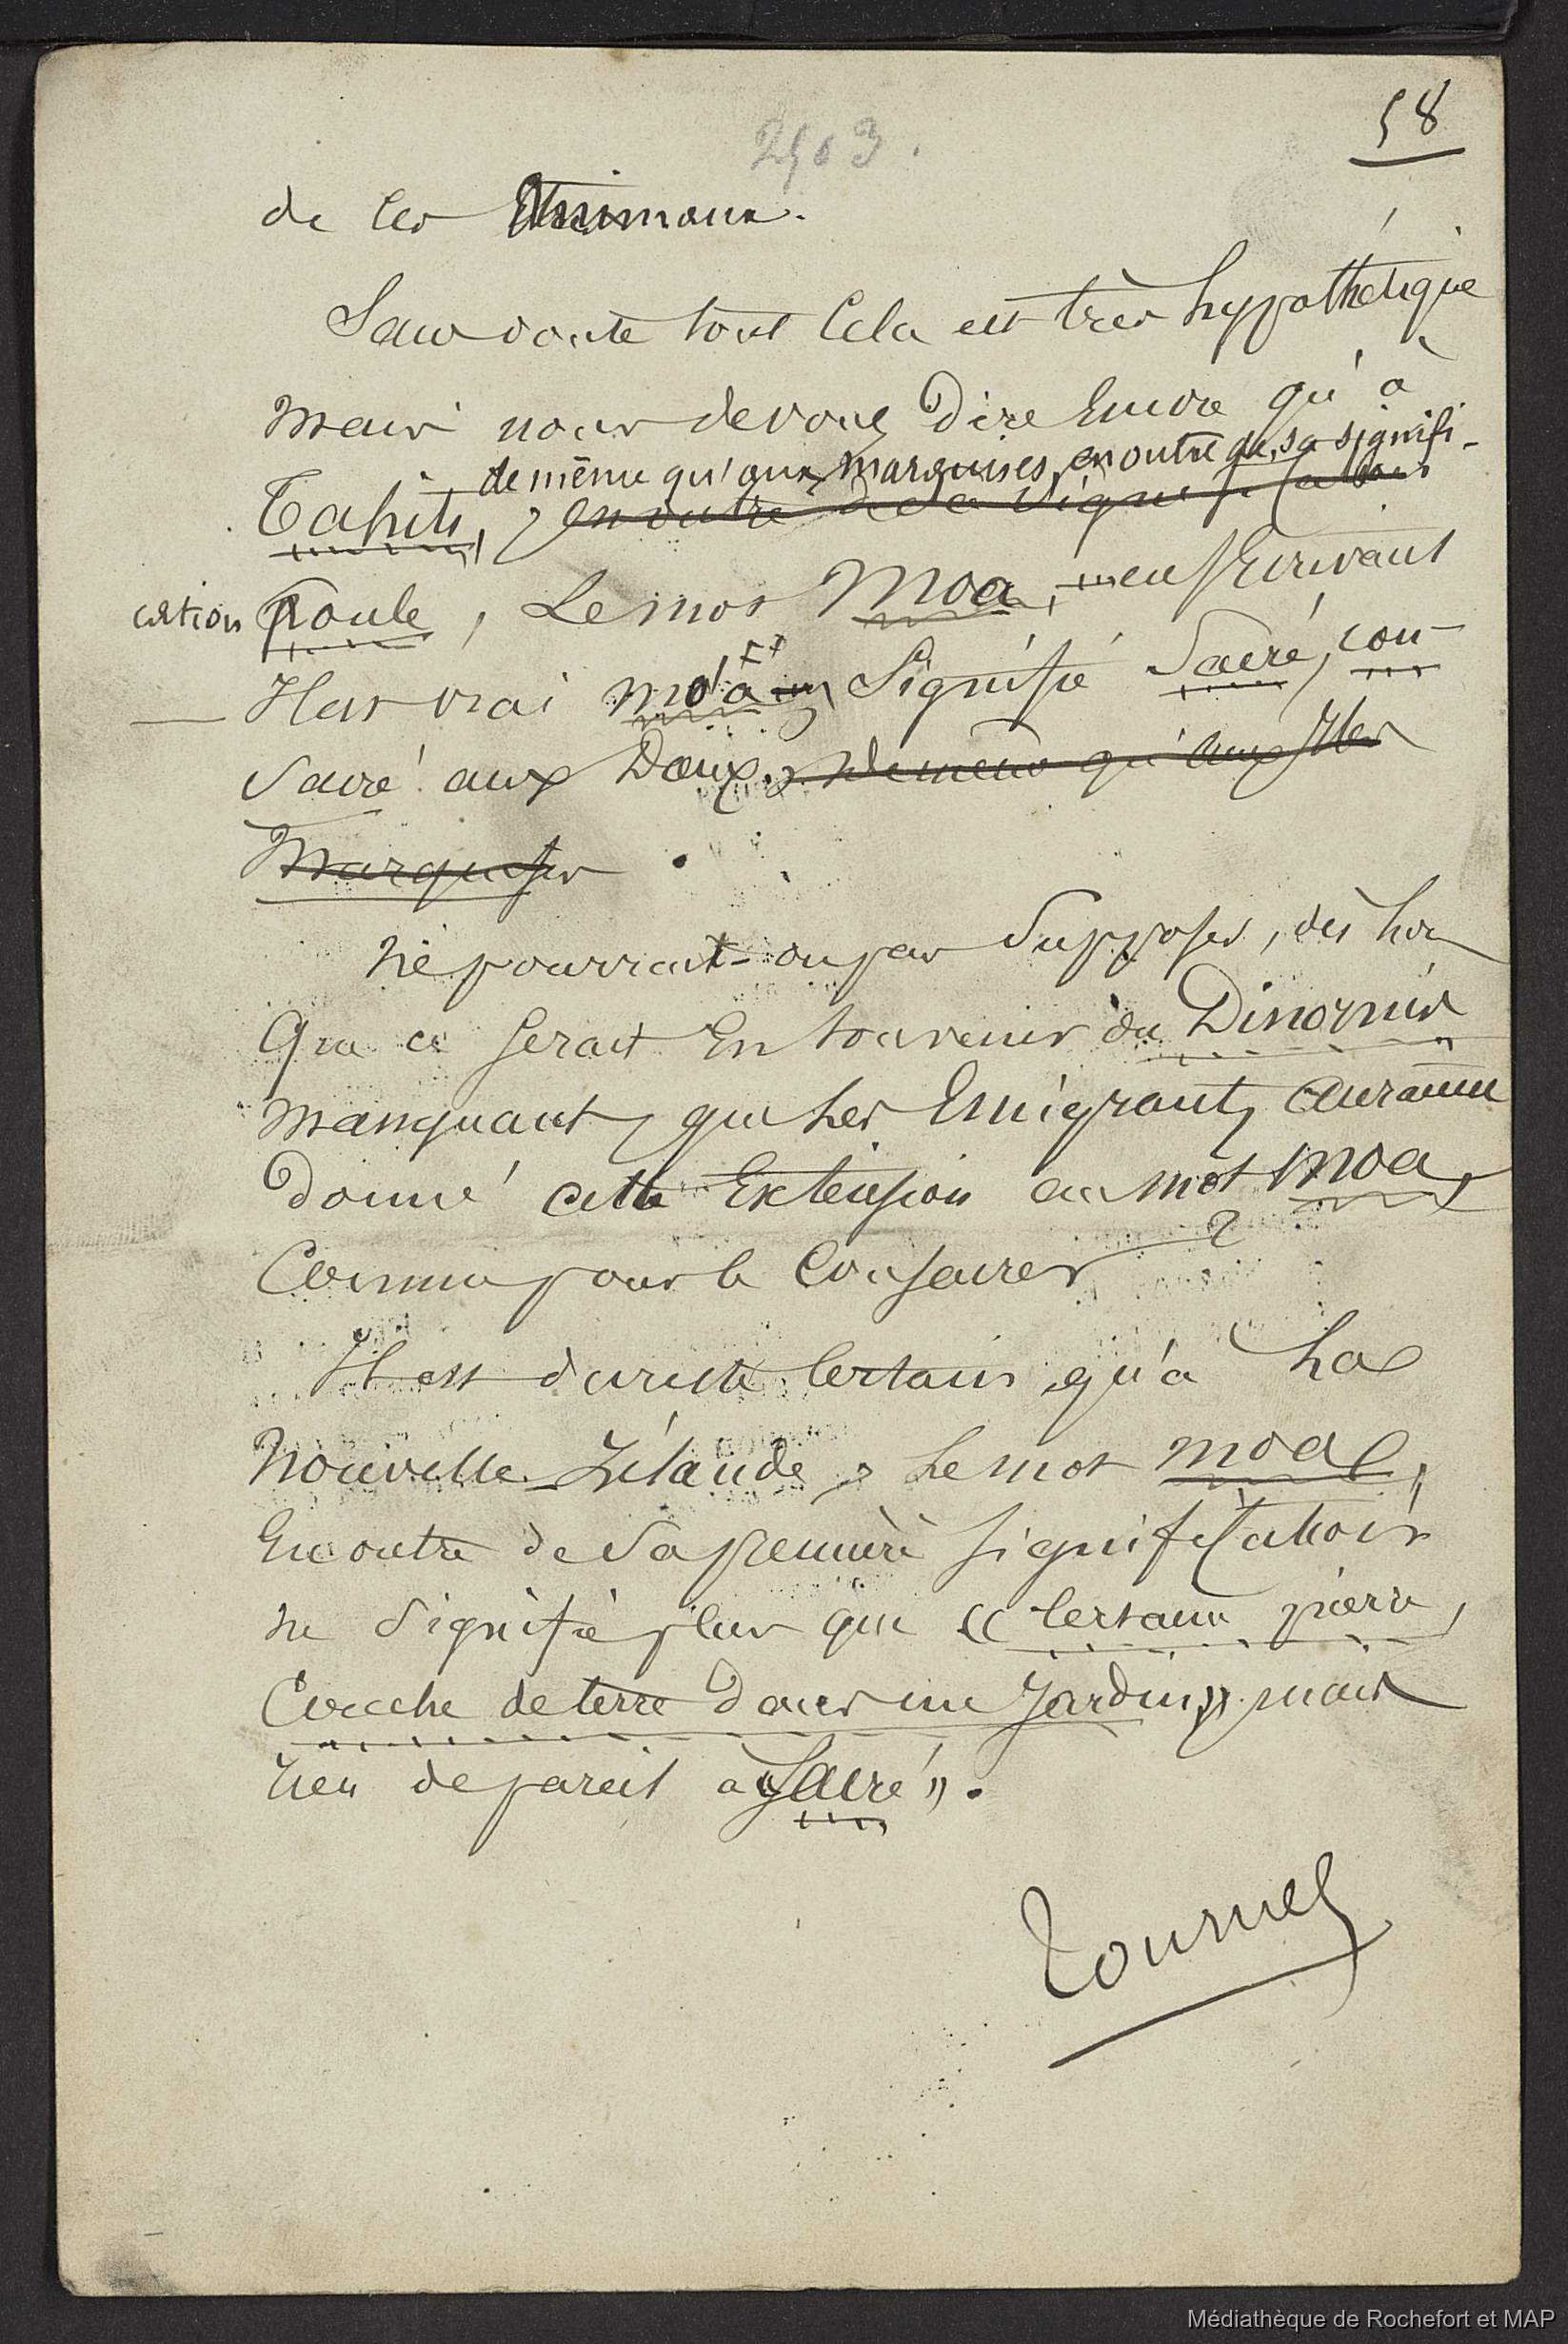 58
2503.
de ces Animaux.
Sans doute tout cela est très hypothétique
mais nous devons dire encore qu'à
de même qu'aux marquises, en outre de sa signifi-
Tahiti, en outre de sa signification
cation Poule, le mot Moa, en l'écrivant
Il est vrai mo'a Signifie Sacré, con-
sacré aux Dieux, de même qu'aux Iles
Marquises.
Ne pourrait-on pas Supposer, dès lors
Que ce serait En souvenir du Dinornis
manquant, que les Emigrants auraient
donné cette Extension au mot moa,
Comme pour le Consacrer ?
Il est du reste certain qu'à La
Nouvelle-Zélande, le mot moa,
En outre de sa première signification
ne signifie plus que « certaine pierre,
Couche de terre dans un Jardin », mais
rien de pareil à « Sacré ».
Tournez
Médiathèque de Rochefort et MAP